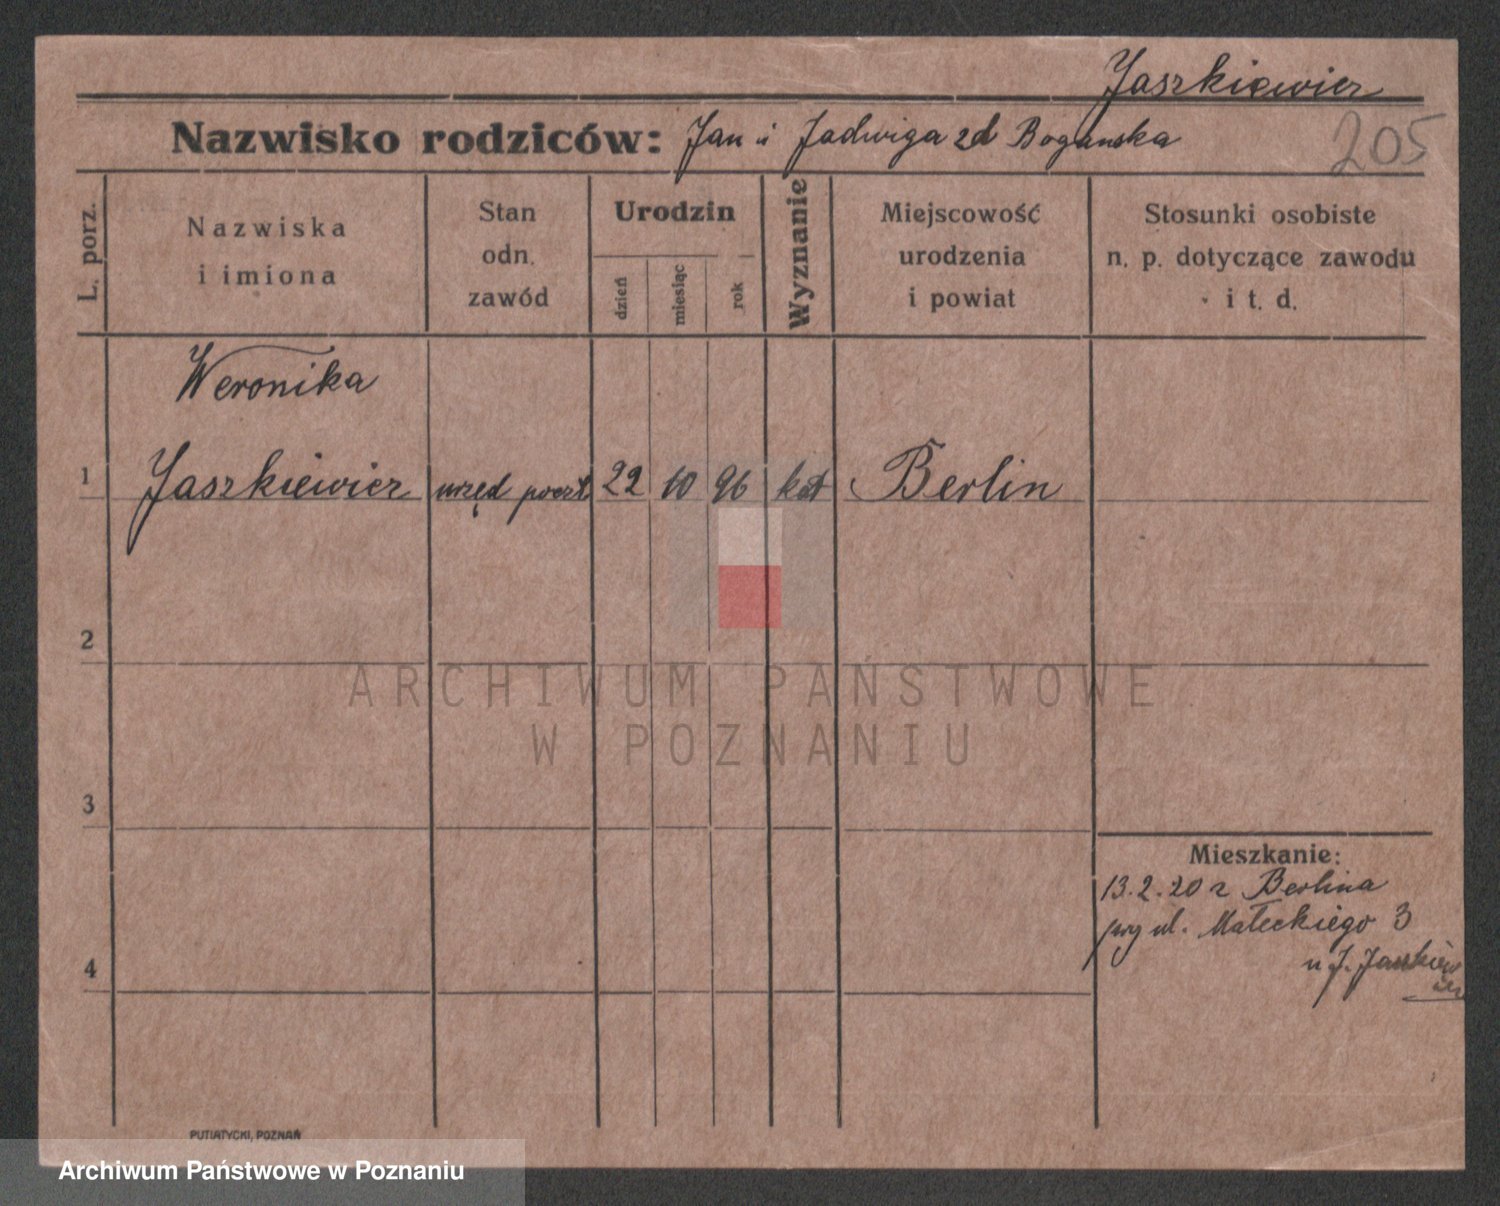 Jaszkiewicz
Nazwisko rodziców: Jan i Jadwiga zd Boganska
205
L. porz.
Nazwiska
i imiona
Stan
odn.
zawód
Urodzin
dzień
miesiąc
rok
Wyznanie
Miejscowość
urodzenia
i powiat
Stosunki osobiste
n. p. dotyczące zawodu
i t. d.
Weronika
1 Jaszkiewicz urzęd poczt 22 10 96 kat Berlin
2
3
4
Mieszkanie:
13.2.20 z Berlina
przy ul. Małeckiego 3
u J. Jaszkiew
icz
PUTIATYCKI, POZNAŃ
ARCHIWUM PAŃSTWOWE
W POZNANIU
Archiwum Państwowe w Poznaniu